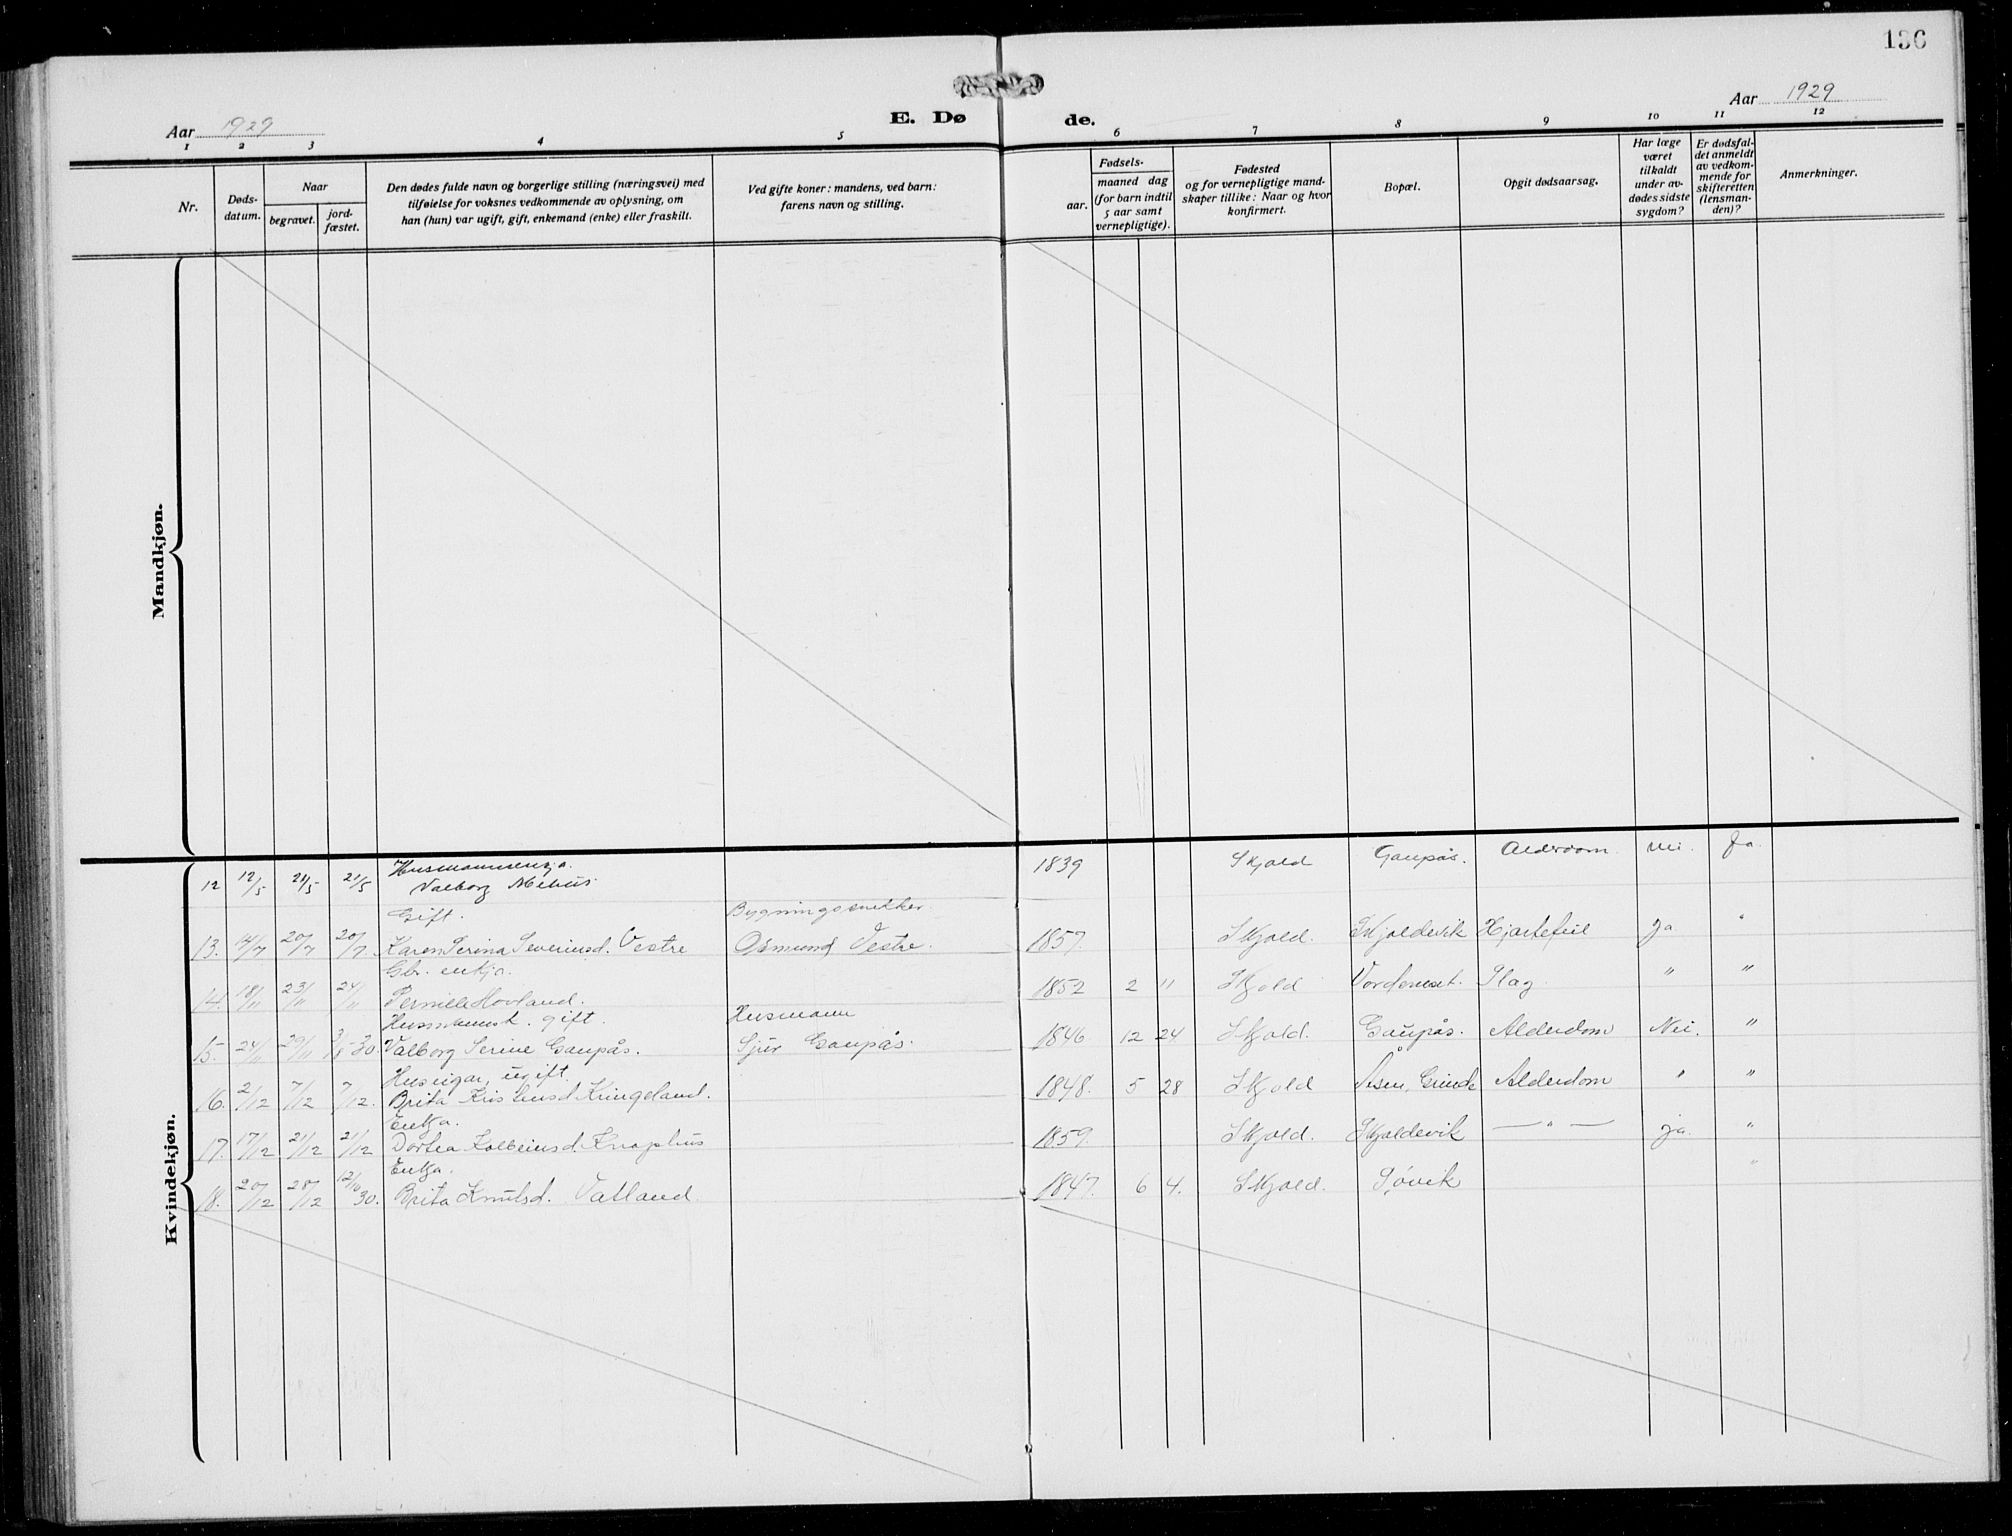 136
Aar 1929
E. Dø
de.
Aar 1929
1 2 3 4 5 6 7 8 9 10 11 12
Nr.
Døds-
datum.
Naar
begravet.
jord-
fæstet.
Den dødes fulde navn og borgerlige stilling (næringsvei) med
tilføielse for voksnes vedkommende av oplysning, om
han (hun) var ugift, gift, enkemand (enke) eller fraskilt.
Ved gifte koner: mandens, ved barn:
farens navn og stilling.
Fødsels-
aar.
maaned dag
(for barn indtil
5 aar samt
vernepligtige).
Fødested
og for vernepligtige mand-
skaper tillike: Naar og hvor
konfirmert.
Bopæl.
Opgit dødsaarsag.
Har læge
været
tilkaldt
under av-
dødes sidste
sygdom?
Er dødsfal-
det anmeldt
av vedkom-
mende for
skifteretten
(lensman-
den)?
Anmerkninger.
Mandkjøn.
Kvindekjøn.
Husmannsenkja.
12 12/5 21/5 21/5 Valborg Mehus 1839 Skjold Gaupås. Alderdom nei. Ja.
Gift. Bygningssnikker
13. 14/7 20/7 20/7. Karen Serina Severinsd. Vestre Osmund Vestre. 1857. Skjold. Skjoldevik Hjartefeil ja "
Gbr. enkja.
14. 18/11 23/11 24/11 Pernille Hovland. 1852 2 11 Skjold Slag. " "
gift. Husmann
15. 24/11 29/11 Valborg Serine Gaupås. Sjur Gaupås. 1846 12 24 Skjold. Gaupås. Alderdom Nei. "
Huseigar, ugift.
16. 2/12 7/12 7/12. Brita Kringeland. 1848. 5 28 Skjold Åsen, Grinde Alderdom " "
Enkja.
17. 17/12 21/12 21/12 Dortea Kolbeinsd. Knapphus 1859. Skjold. Skjoldevik — " — ja. "
Enkja.
18. 20/12 28/12 12/10 30. Brita Knutsd. Vatland 1847. 6 4. Skjold Søvik "